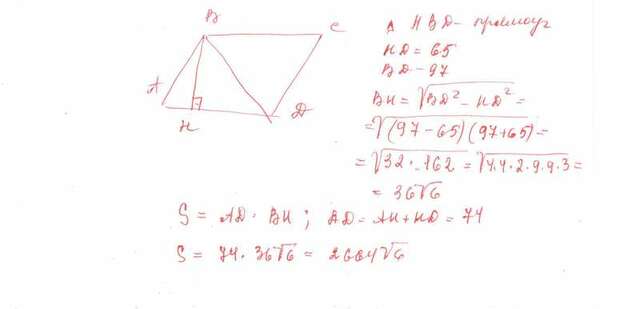 B
C
A
H
D
Δ HBD - прямоуг
HD = 65
BD - 97
BH = √BD² - HD² =
= √(97-65)(97+65) =
= √32·162 = √4.4.2.9.9.3 =
= 36√6
S = AD · BH ; AD = AH + HD = 74
S = 74 · 36√6 = 2664√6